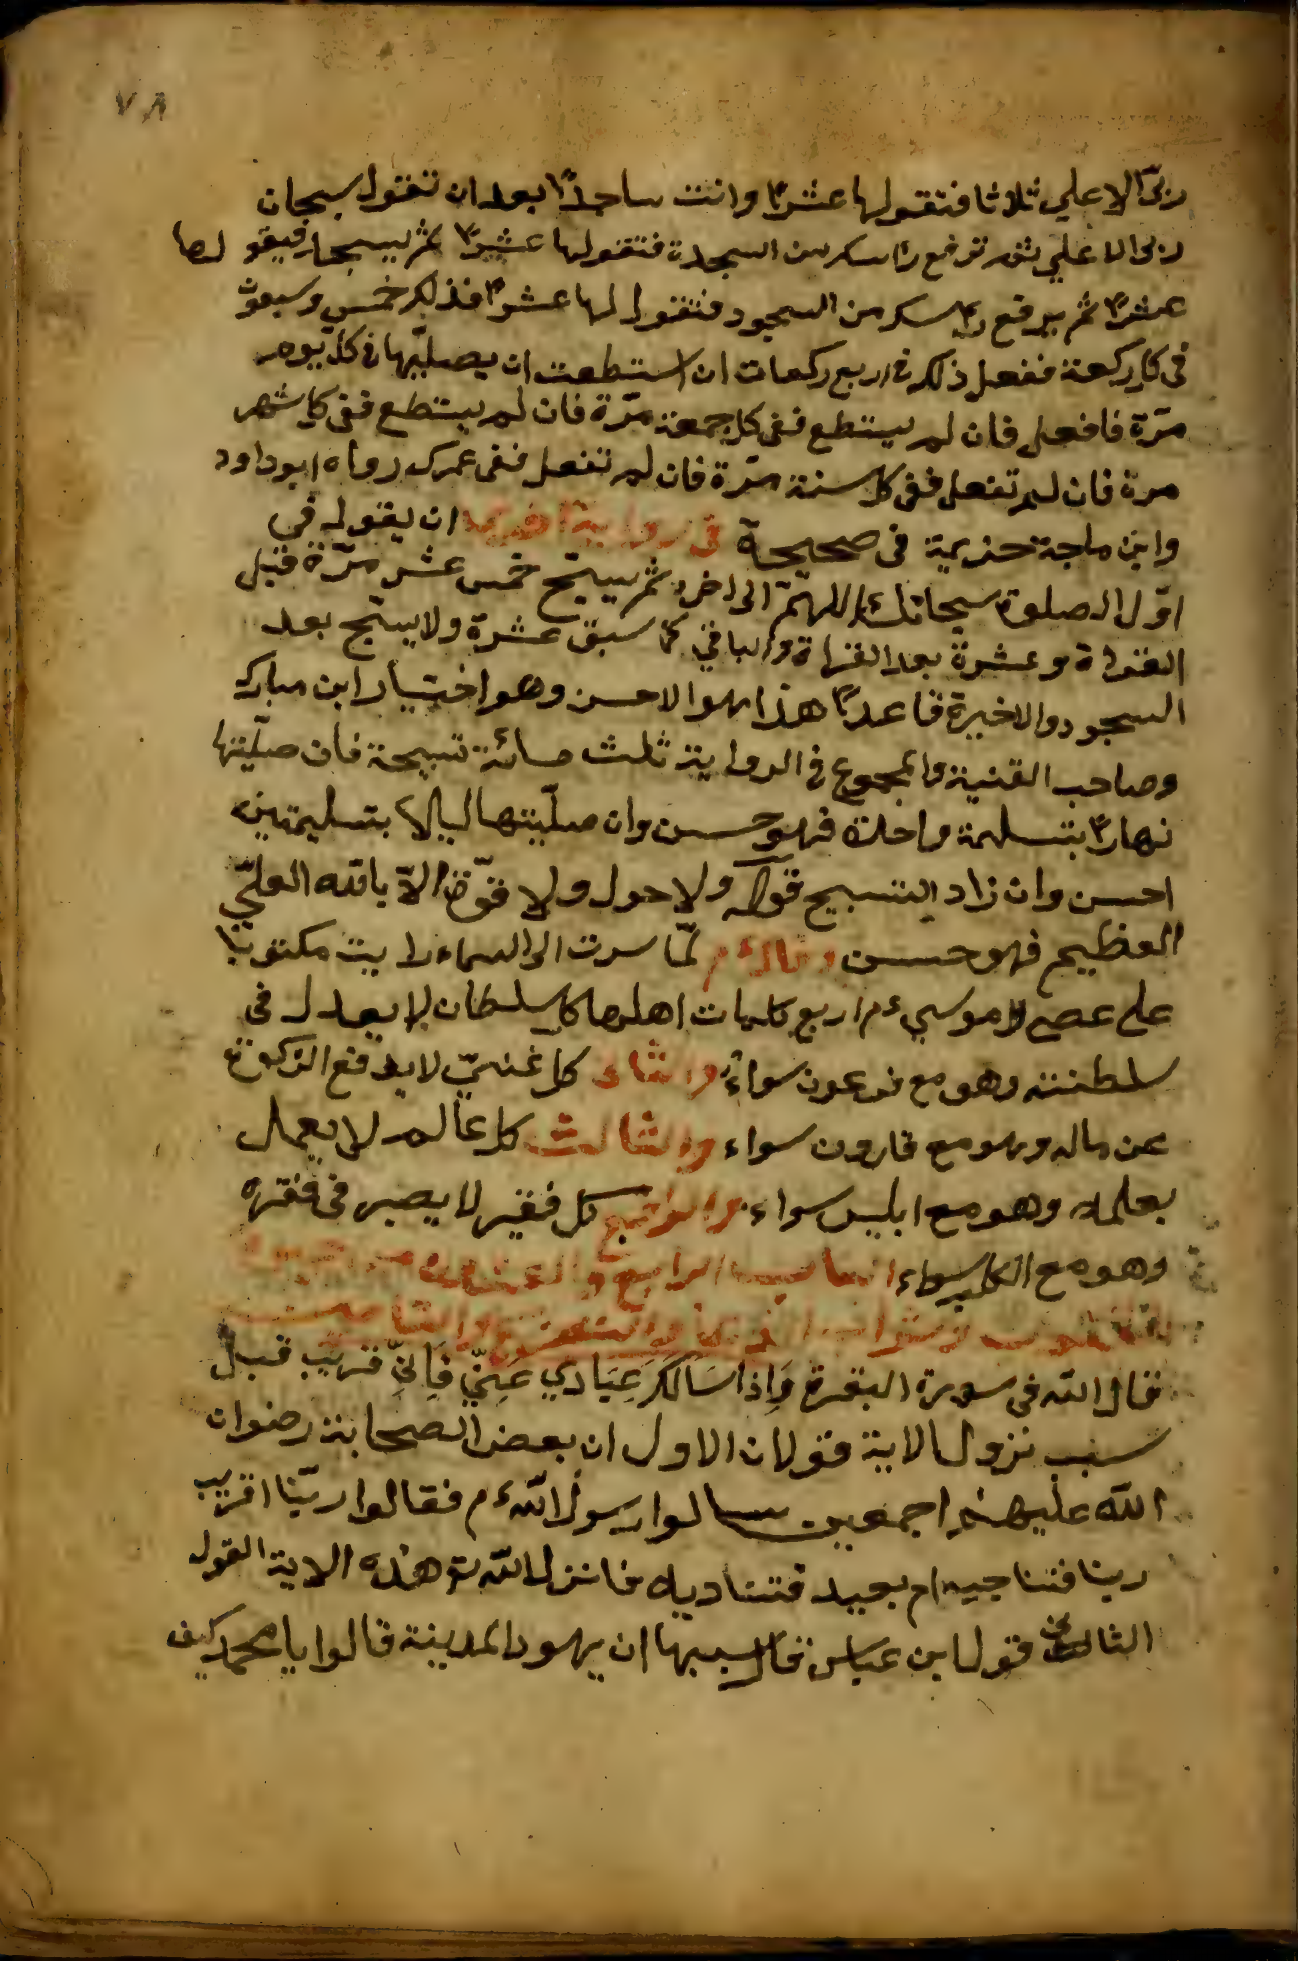 ٧٨
ربّى الاعلي ثلاثا فتقولها عشرًا وانت ساجدًا بعد ان تقول سبحان
ربى الاعلي ثم ترفع راسك من السجدة فتقولها عشرًا ثم يسجد فيقولها
عشرًا ثم يرفع راسك من السجود فتقولها عشرًا فذلك خمس وسبعون
فى كل ركعة فتفعل ذلك فى اربع ركعات ان استطعت ان يصليّها فى كل يوم
مرّة فافعل فان لم يستطع ففى كل جمعة مرّة فان لم يستطع ففى كل شهر
مرة فان لم تفعل ففى كل سنة مرّة فان لم تفعل ففى عمرك رواه ابو داود
وابن ماجة حزيمة فى صحيحة فى رواية اخرى ان يقول فى
اوّل الصلوة سبحانك اللهمّ الى اخره ثم يسبّح خمس عشر مرّة قبل
القراة وعشرة بعد القراة والباقي كما سبق عشرة ولا يسبّح بعد
السجود والاخيرة قاعدًا هذا هو الاحسن وهو اختيار ابن مبارك
وصاحب القنية والمجموع فى الرواية ثلث مائة تسبيحة فان صلّيتها
نهارًا بتسلمة واحلة فهو حسن وان صلّيتها ليالا بتسليمتين
احسن وان زاد التسبيح قوله ولا حول ولا قوّة الاّ بالله العليّ
العظيم فهو حسن وقال ءم لمّا سرت الى السماء رايت مكتوبا
على عصا موسي ءم اربع كلمات اهلها كل سلطان لا يعدل فى
سلطنته وهو مع فرعون سواء والثاء كل غنيّ لا يدفع الزكوة
عن ماله وهو مع قارون سواء والثالث كل عالم لا يعمل
بعلمه وهو مع ابليس سواء والرابع كل فقير لا يصبر فى فقره
وهو مع الكلب سواء الباب الرابع والعشرون
قال الله فى سورة البقرة وَاِذا سَالَكَ عِبَادي عَنّي فَاِنّي قريب قبل
سبب نزول الاية قولان الاول ان بعض الصحابة رضوان
الله عليهم اجمعين سالوا رسول الله ءم فقالوا ربّنا اقريب
ربنا فتناجيه ام بعيد فتناديه فانزل الله تع هذه الاية القول
الثانى قول ابن عباس قال سببها ان يهود المدينة قالوا يا محمد كيف